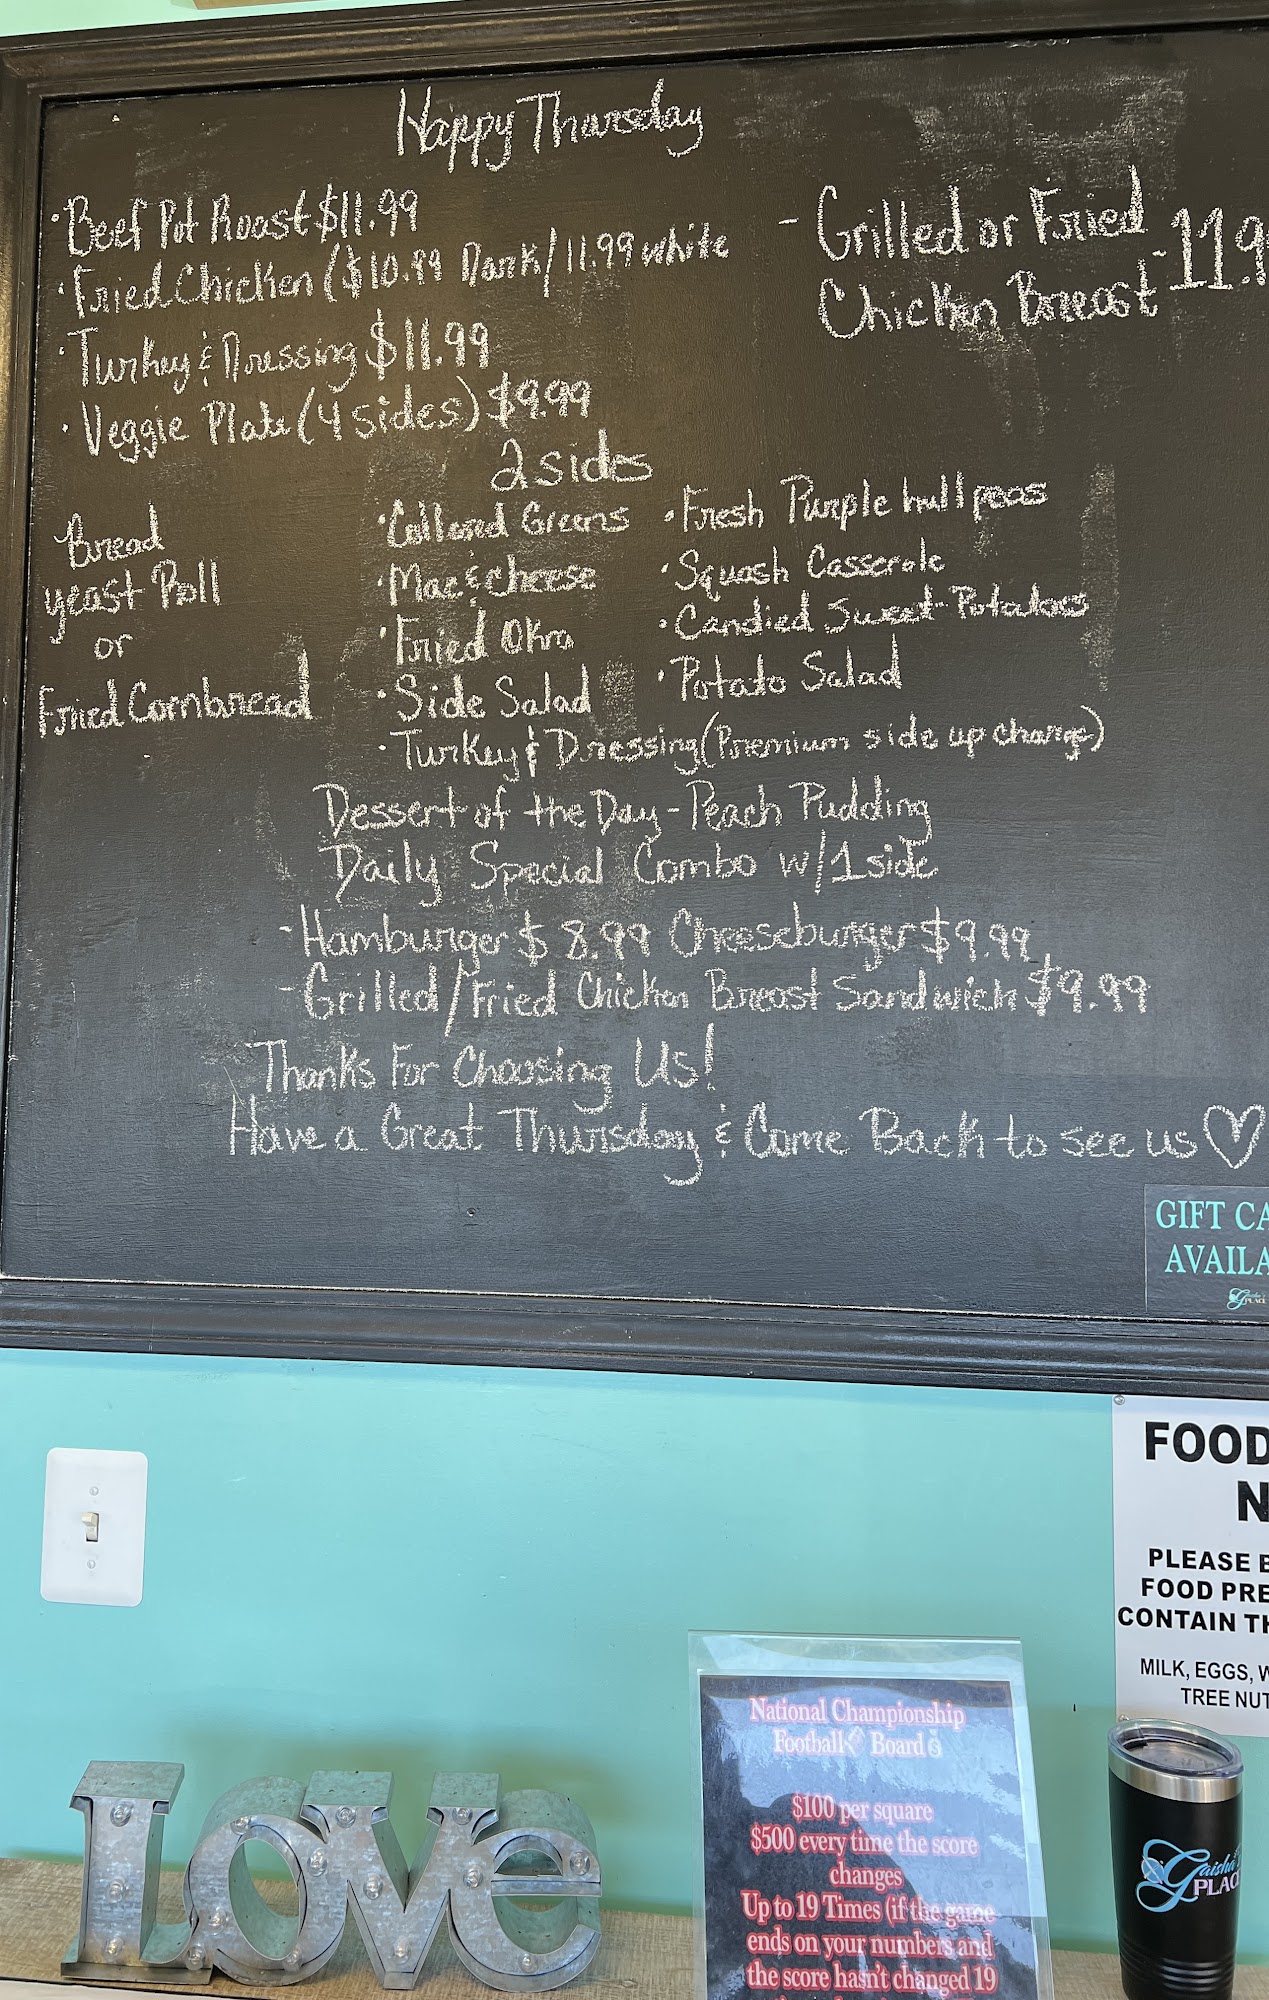 Happy Thursday
· Beef Pot Roast $11.99
· Fried Chicken ($10.99 Dark/11.99 white
· Turkey & Dressing $11.99
· Veggie Plate (4 sides) $9.99
- Grilled or Fried
Chicken Breast -11.9
2 sides
Bread
yeast Roll
or
Fried Cornbread
· Collared Greens
· Mac & cheese
· Fried Okra
· Side Salad
· Turkey & Dressing (Premium side up charge)
· Fresh Purple hull peas
· Squash Casserole
· Candied Sweet Potatoes
· Potato Salad
Dessert of the Day - Peach Pudding
Daily Special Combo w/1 side
- Hamburger $8.99 Cheeseburger $9.99
- Grilled/Fried Chicken Breast Sandwich $9.99
Thanks For Choosing Us!
Have a Great Thursday & Come Back to see us ♡
GIFT CA
AVAILA
PLACE
FOOD
N
PLEASE B
FOOD PRE
CONTAIN TH
MILK, EGGS, W
TREE NUT
National Championship
Football Board
$100 per square
$500 every time the score
changes
Up to 19 Times (if the game
ends on your numbers and
the score hasn't changed 19
Gaisha's
PLACE
LOVe